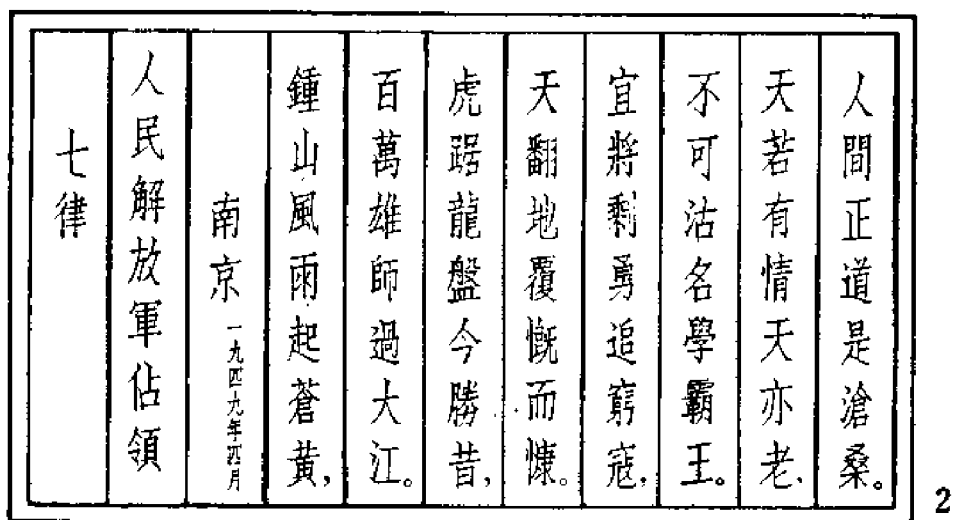 七律
人民解放軍佔領
南京 一九四九年四月
鍾山風雨起蒼黃，
百萬雄師過大江。
虎踞龍盤今勝昔，
天翻地覆慨而慷。
宜將剩勇追窮寇，
不可沽名學霸王。
天若有情天亦老，
人間正道是滄桑。
2